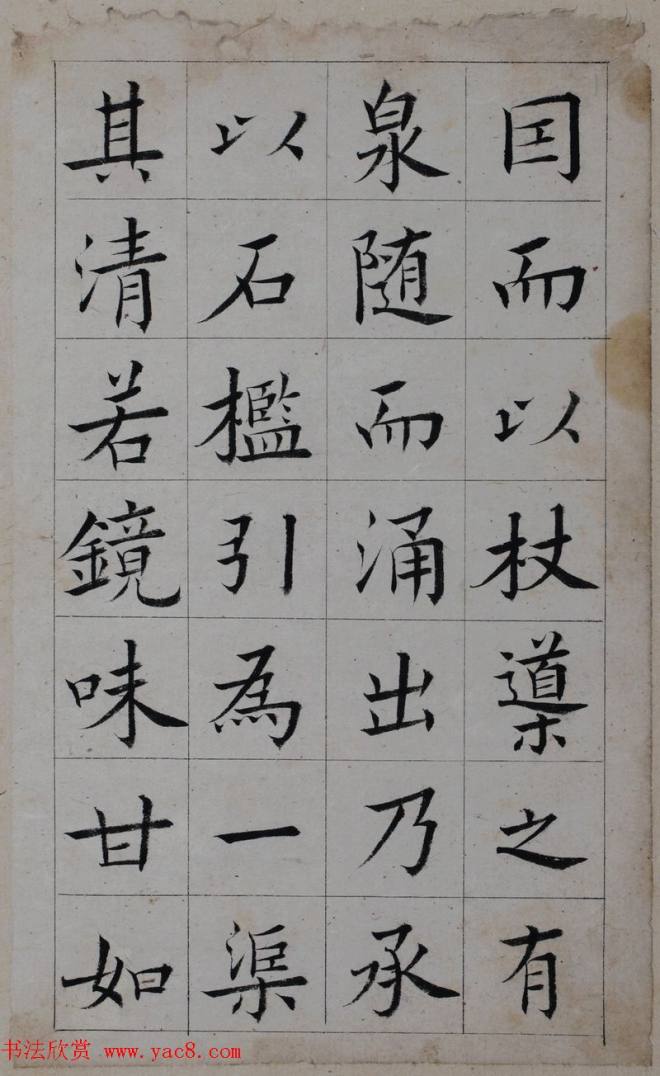 囙而以杖導之有
泉随而涌出乃承
以石檻引為一渠
其清若鏡味甘如
书法欣赏 www.yac8.com